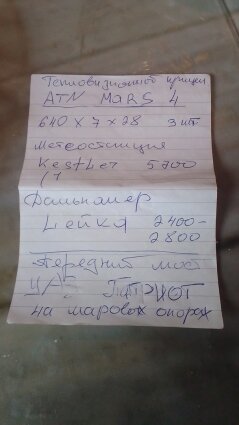 Тепловизионный прицел
ATN MARS 4
640 X 7 X 28 3 шт.
Метеостанция
Kestrel 5700
(1
Дальномер
Leйка 2400-
2800
Передний мост
УАЗ ПАТРИОТ
на шаровых опорах